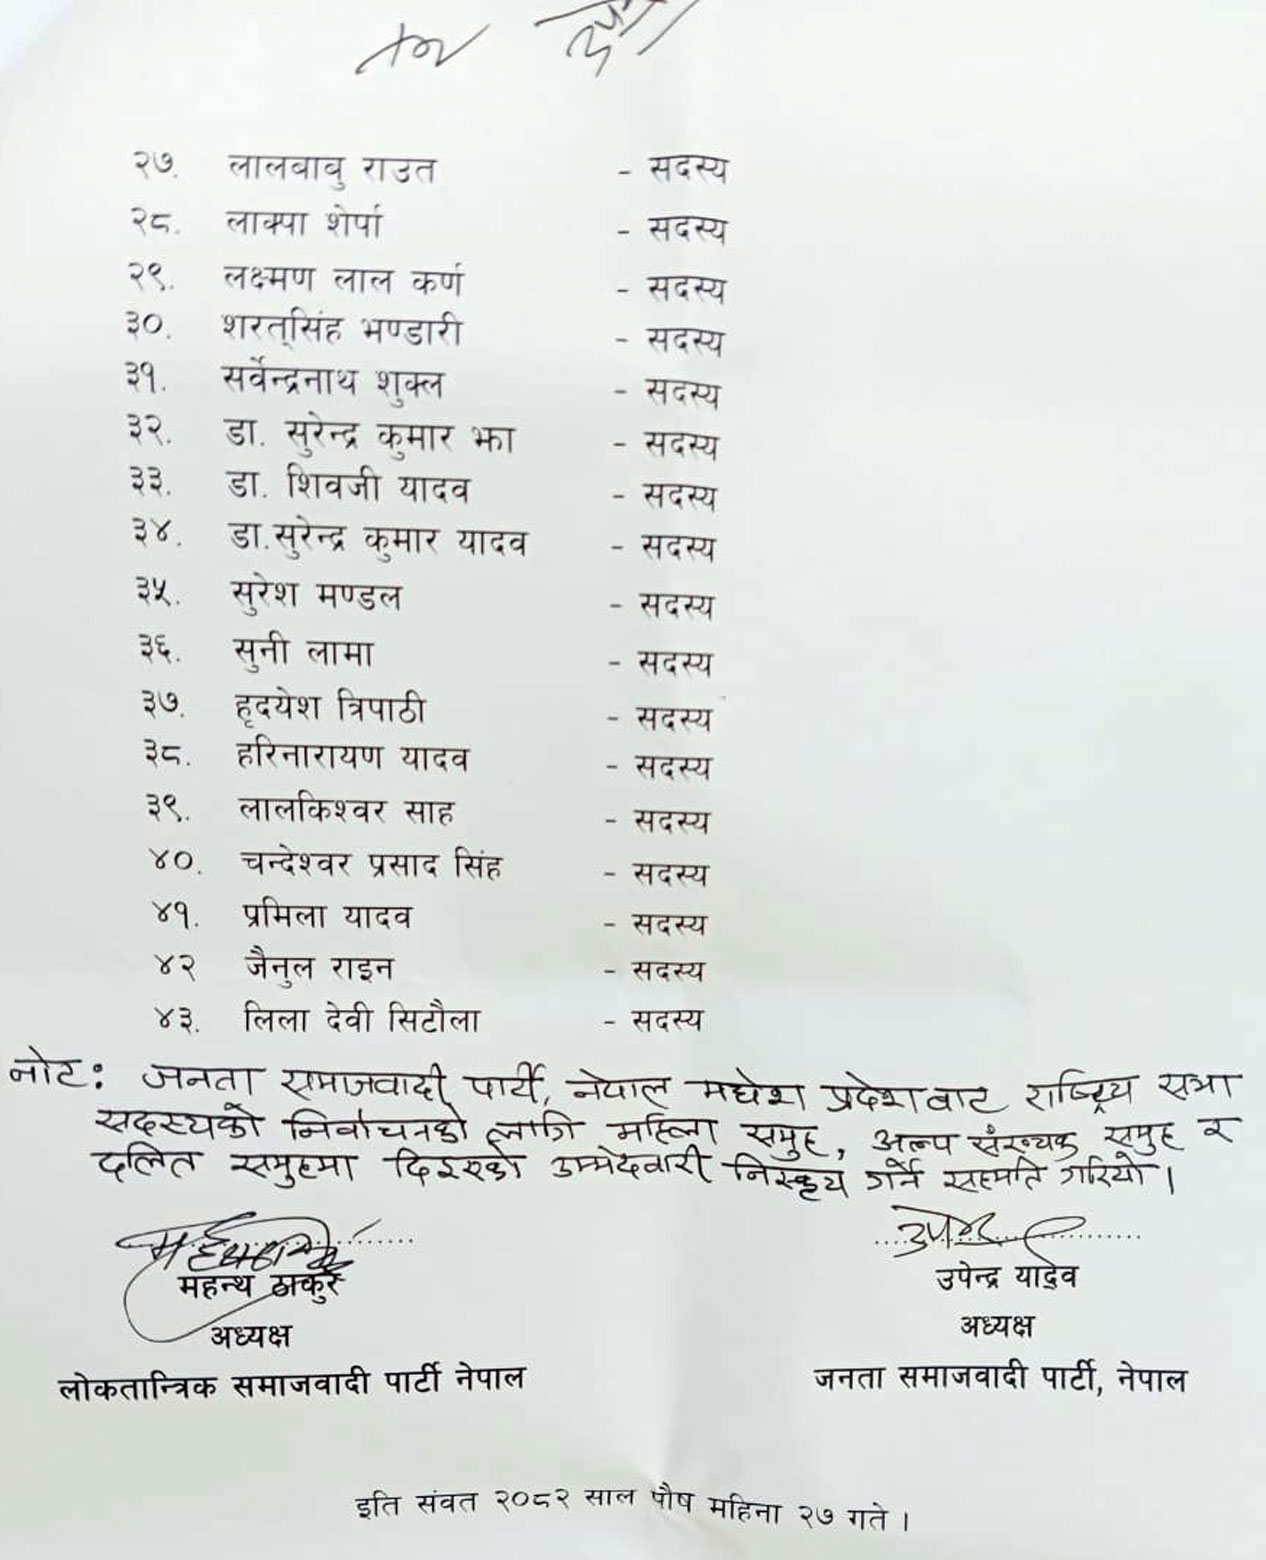 २७. लालबाबु राउत - सदस्य
२८. लाक्पा शेर्पा - सदस्य
२९. लक्ष्मण लाल कर्ण - सदस्य
३०. शरत्सिंह भण्डारी - सदस्य
३१. सर्वेन्द्रनाथ शुक्ल - सदस्य
३२. डा. सुरेन्द्र कुमार झा - सदस्य
३३. डा. शिवजी यादव - सदस्य
३४. डा.सुरेन्द्र कुमार यादव - सदस्य
३५. सुरेश मण्डल - सदस्य
३६. सुनी लामा - सदस्य
३७. हृदयेश त्रिपाठी - सदस्य
३८. हरिनारायण यादव - सदस्य
३९. लालकिश्वर साह - सदस्य
४०. चन्देश्वर प्रसाद सिंह - सदस्य
४१. प्रमिला यादव - सदस्य
४२ जैनुल राइन - सदस्य
४३. लिला देवी सिटौला - सदस्य
नोट: जनता समाजवादी पार्टी, नेपाल मधेश प्रदेशबाट राष्ट्रिय सभा
सदस्यको निर्वाचनको लागि महिला समुह, अल्प संख्यक समुह र
दलित समुहमा दिइएको उम्मेदवारी निस्कृय गर्ने सहमति गरियो।
महन्थ ठाकुर उपेन्द्र यादव
अध्यक्ष अध्यक्ष
लोकतान्त्रिक समाजवादी पार्टी नेपाल जनता समाजवादी पार्टी, नेपाल
इति संवत २०८२ साल पौष महिना २७ गते ।